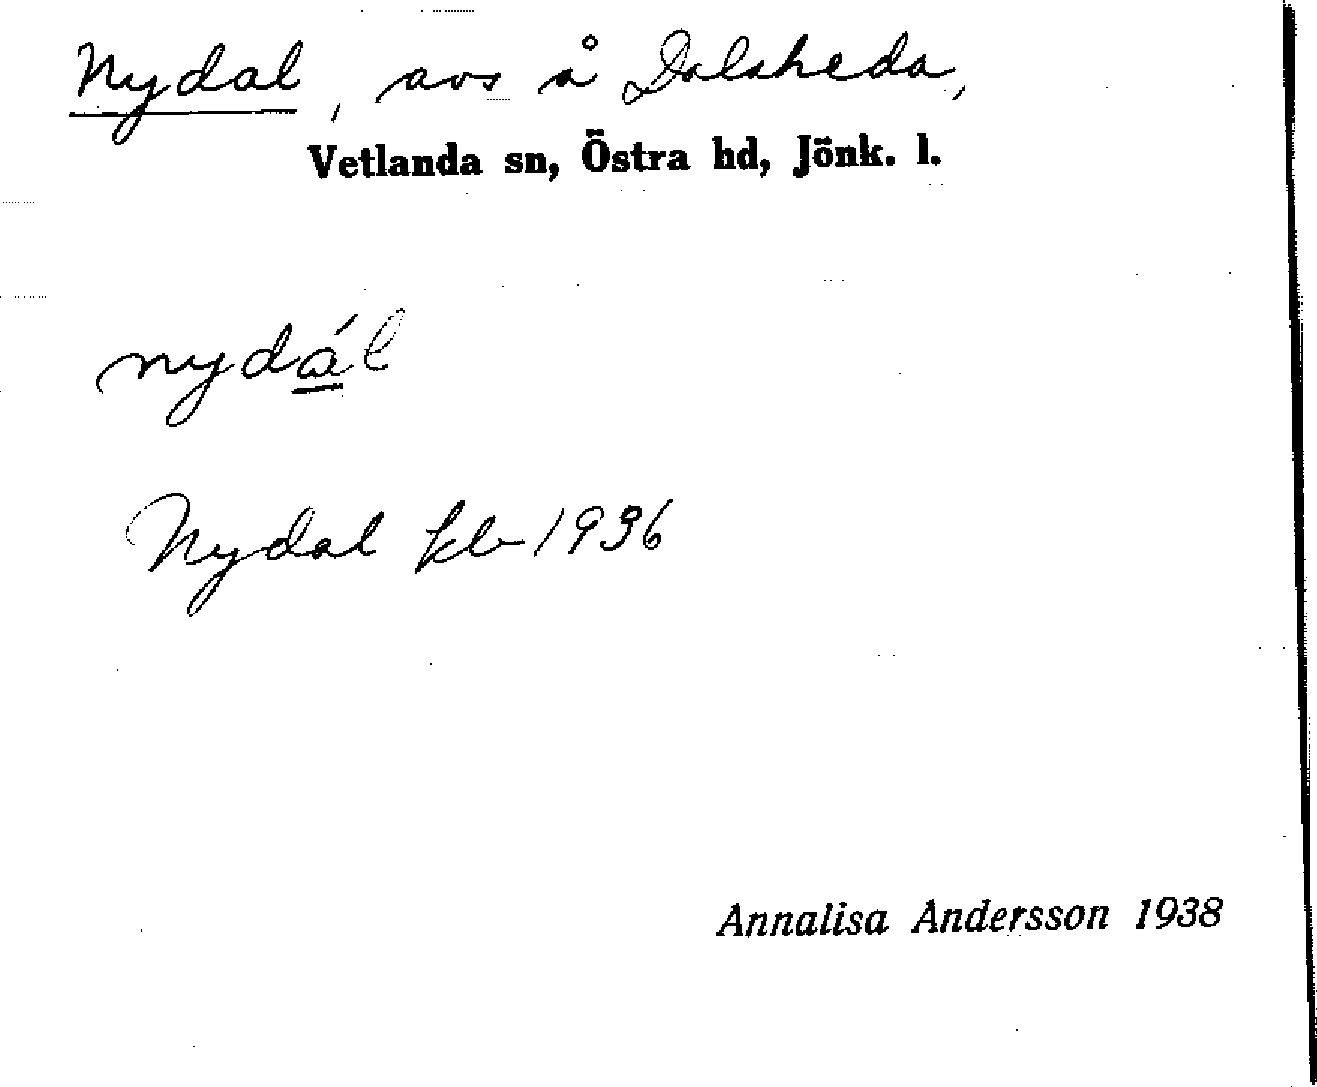 Nydal, avs å Dalaheda,
Vetlanda sn, Östra hd, Jönk. l.
nydál
Nydal 1936
Annalisa Andersson 1938